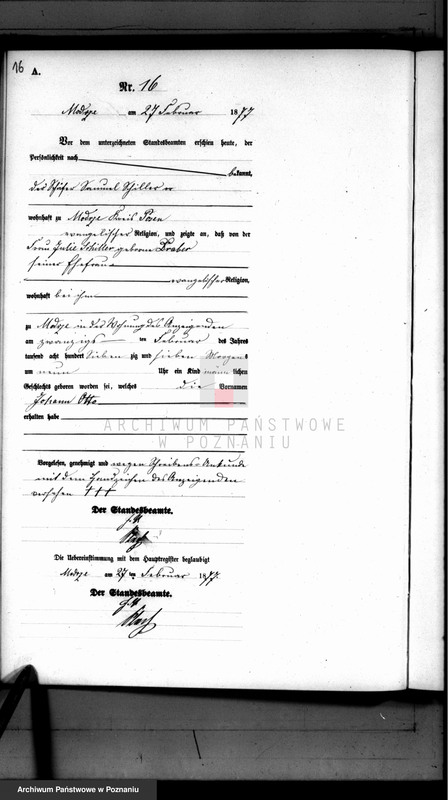 16
A.
Nr. 16
Modrze am 27 Februar 1877
Vor dem unterzeichneten Standesbeamten erschien heute, der
Persönlichkeit nach
bekannt,
der Schäfer Samuel Schiller
wohnhaft zu Modrze Kreis Posen
evangelischer Religion, und zeigte an, daß von der
Frau Julie Schiller geborene
seiner Ehefrau
evangelischer Religion,
wohnhaft bei ihm
zu Modrze in der Wohnung des Anzeigenden
am zwanzigsten Februar des Jahres
tausend acht hundert sieben zig und sieben Morgens
um neun Uhr ein Kind männlichen
Geschlechts geboren worden sei, welches die Vornamen
Johann Otto
erhalten habe
ARCHIWUM PAŃSTWOWE
W POZNANIU
Vorgelesen, genehmigt und wegen Schreibens-Unkunde
mit dem Handzeichen des Anzeigenden
versehen †††
Der Standesbeamte.
Die Uebereinstimmung mit dem Hauptregister beglaubigt
Modrze am 27 ten Februar 1877.
Der Standesbeamte.
Archiwum Państwowe w Poznaniu